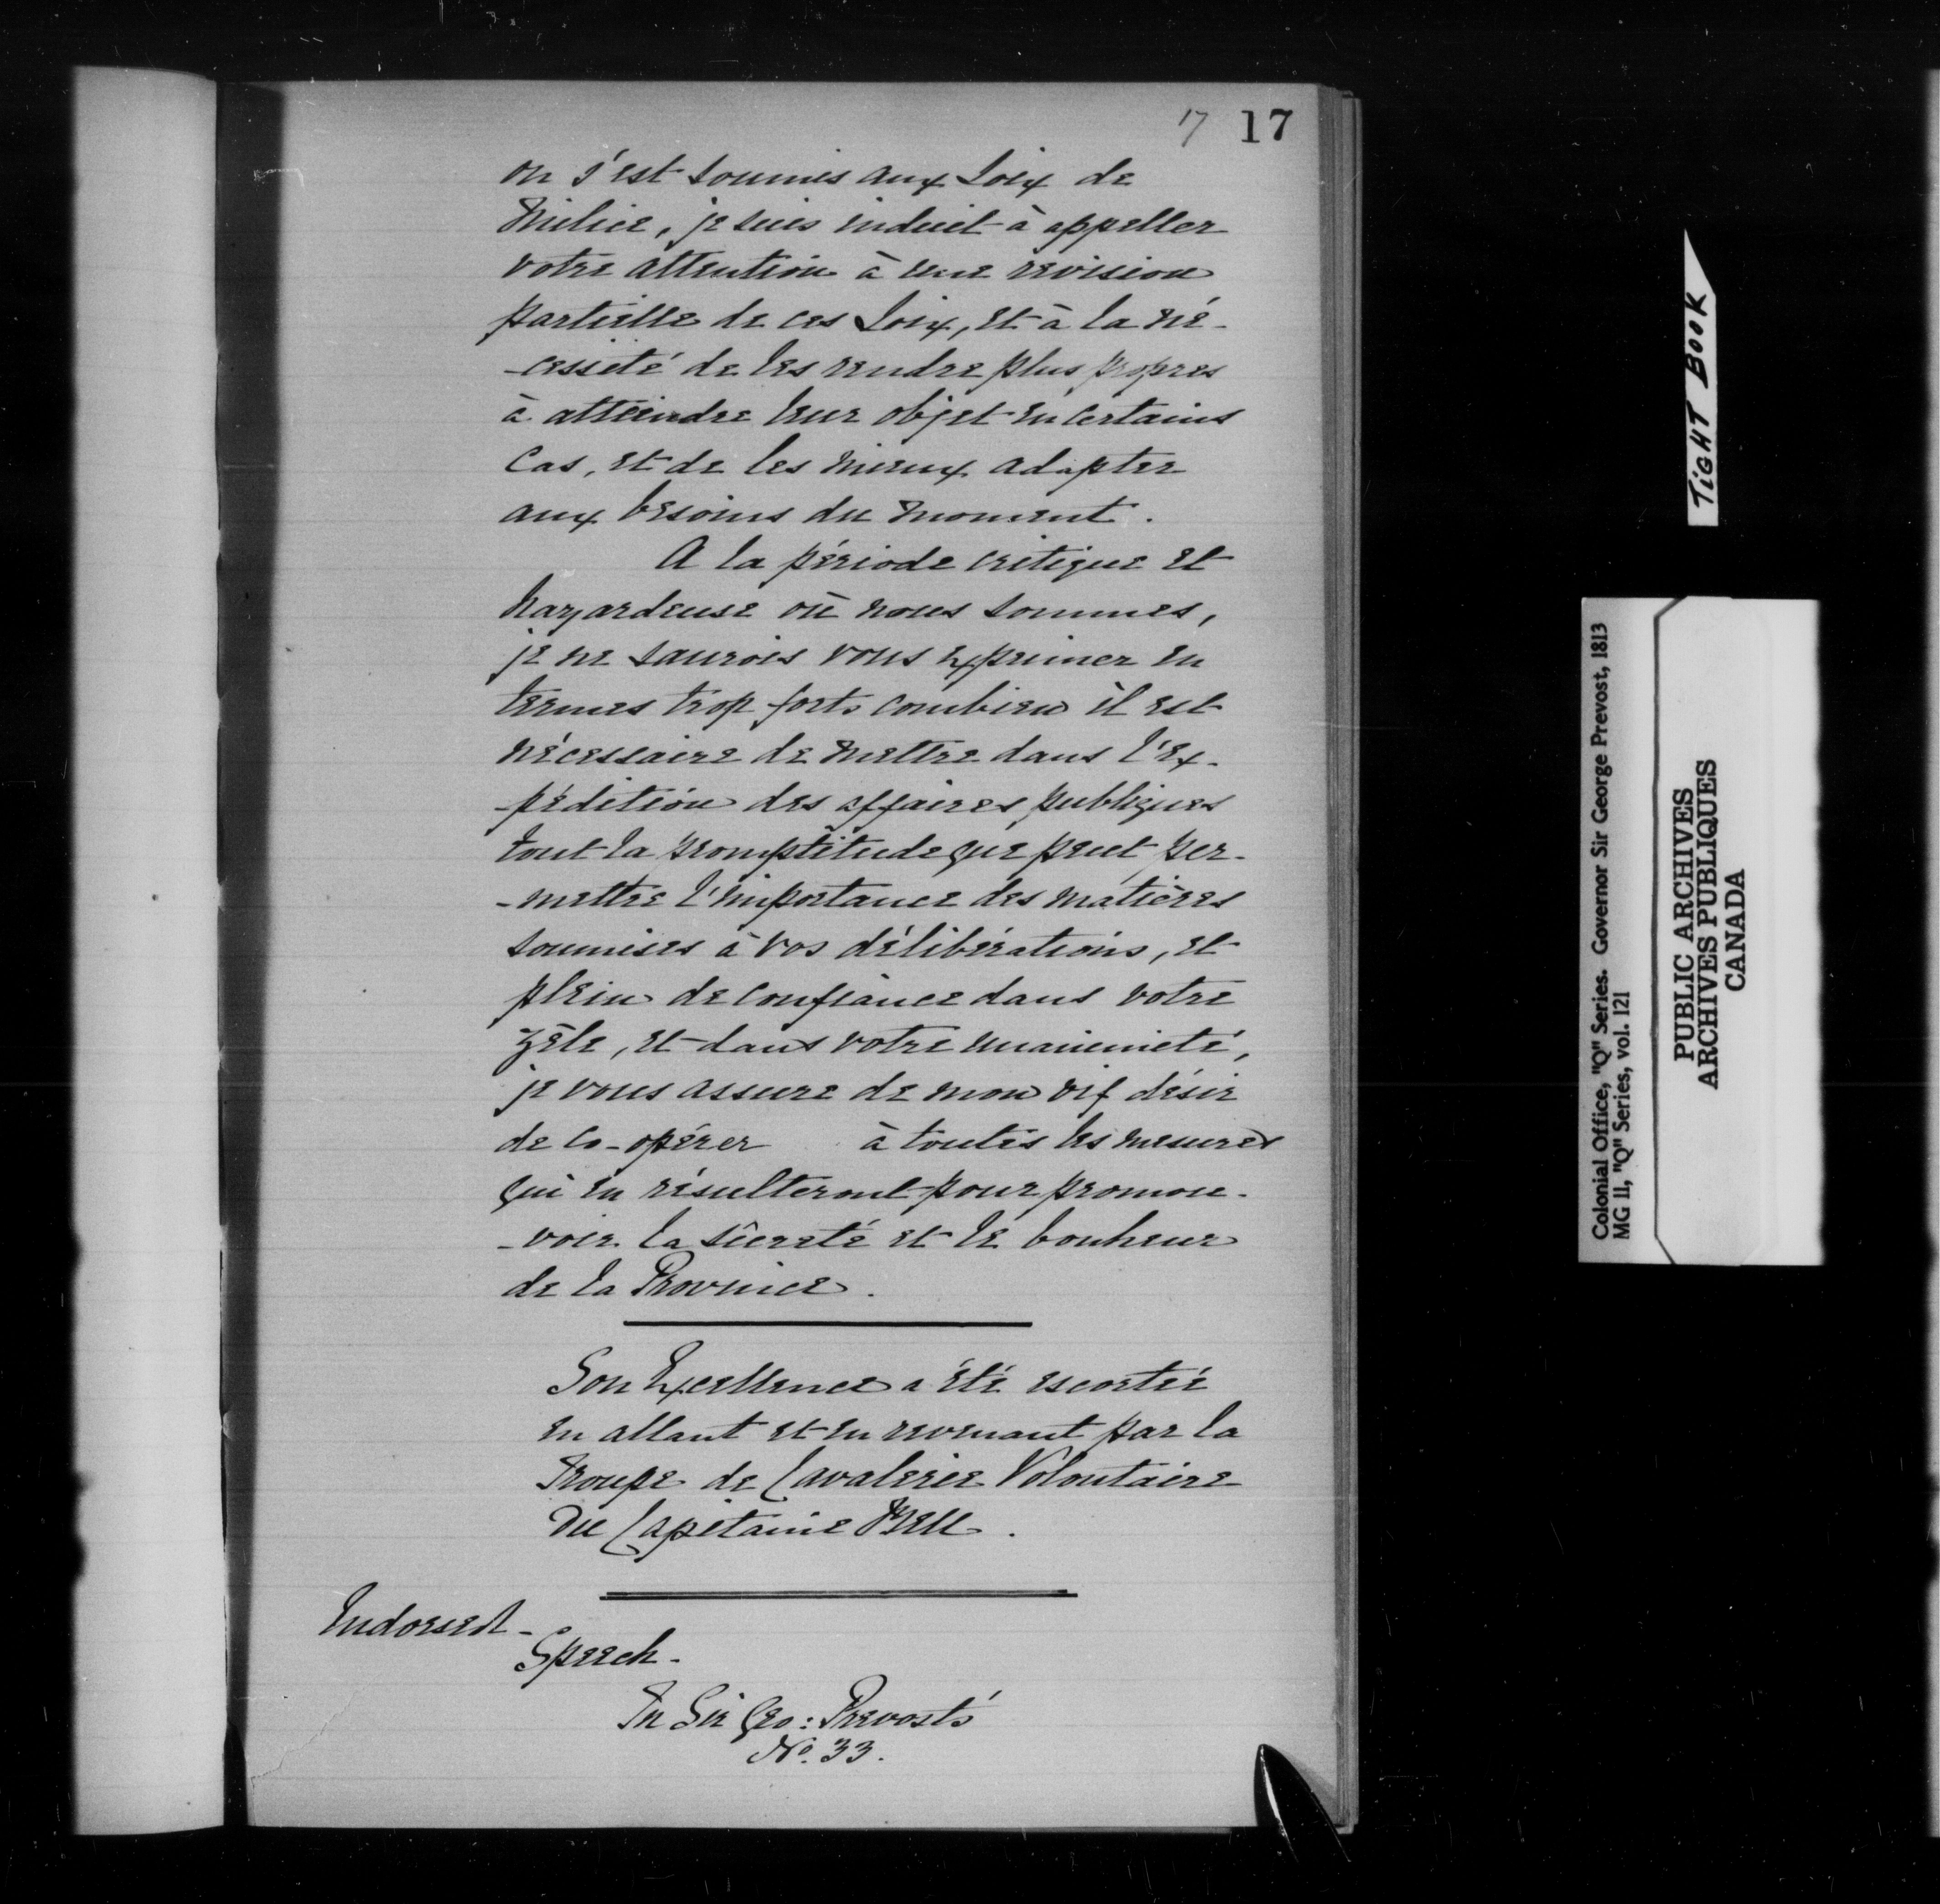 17 17
on s'est soumis aux Loix de
Milice, je suis induit à appeller
votre attention à une revision
partielle de ces Loix, et à la né-
-cessité de les rendre plus propres
à atteindre leur objet en certains
Cas, et de les mieux adapter
aux besoins du moment.
A la période critique et
hazardeuse où nous sommes,
je ne saurois vous exprimer en
termes trop forts combien il est
nécessaire de mettre dans l'ex-
-pédition des affaires publiques
tout la promptitude que peut per-
-mettre l'importance des matières
soumises à vos délibérations, et
plein de confiance dans votre
zêle, et dans votre unanimité,
je vous assure de mon vif désir
de Co-opérer à toutes les mesures
qui en résulteront pour promou-
-voir la sûreté et le bonheur
de la Province.
Son Excellence a été escortée
en allant et en revenant par la
Troupe de Cavalerie Volontaire
du Capitaine Bell.
Indorsed-
Speech-
In Sir Geo: Prevost's
No. 33.
TIGHT BOOK
Colonial Office, "Q" Series. Governor Sir George Prevost, 1813
MG 11, "Q" Series, vol. 121
PUBLIC ARCHIVES
ARCHIVES PUBLIQUES
CANADA